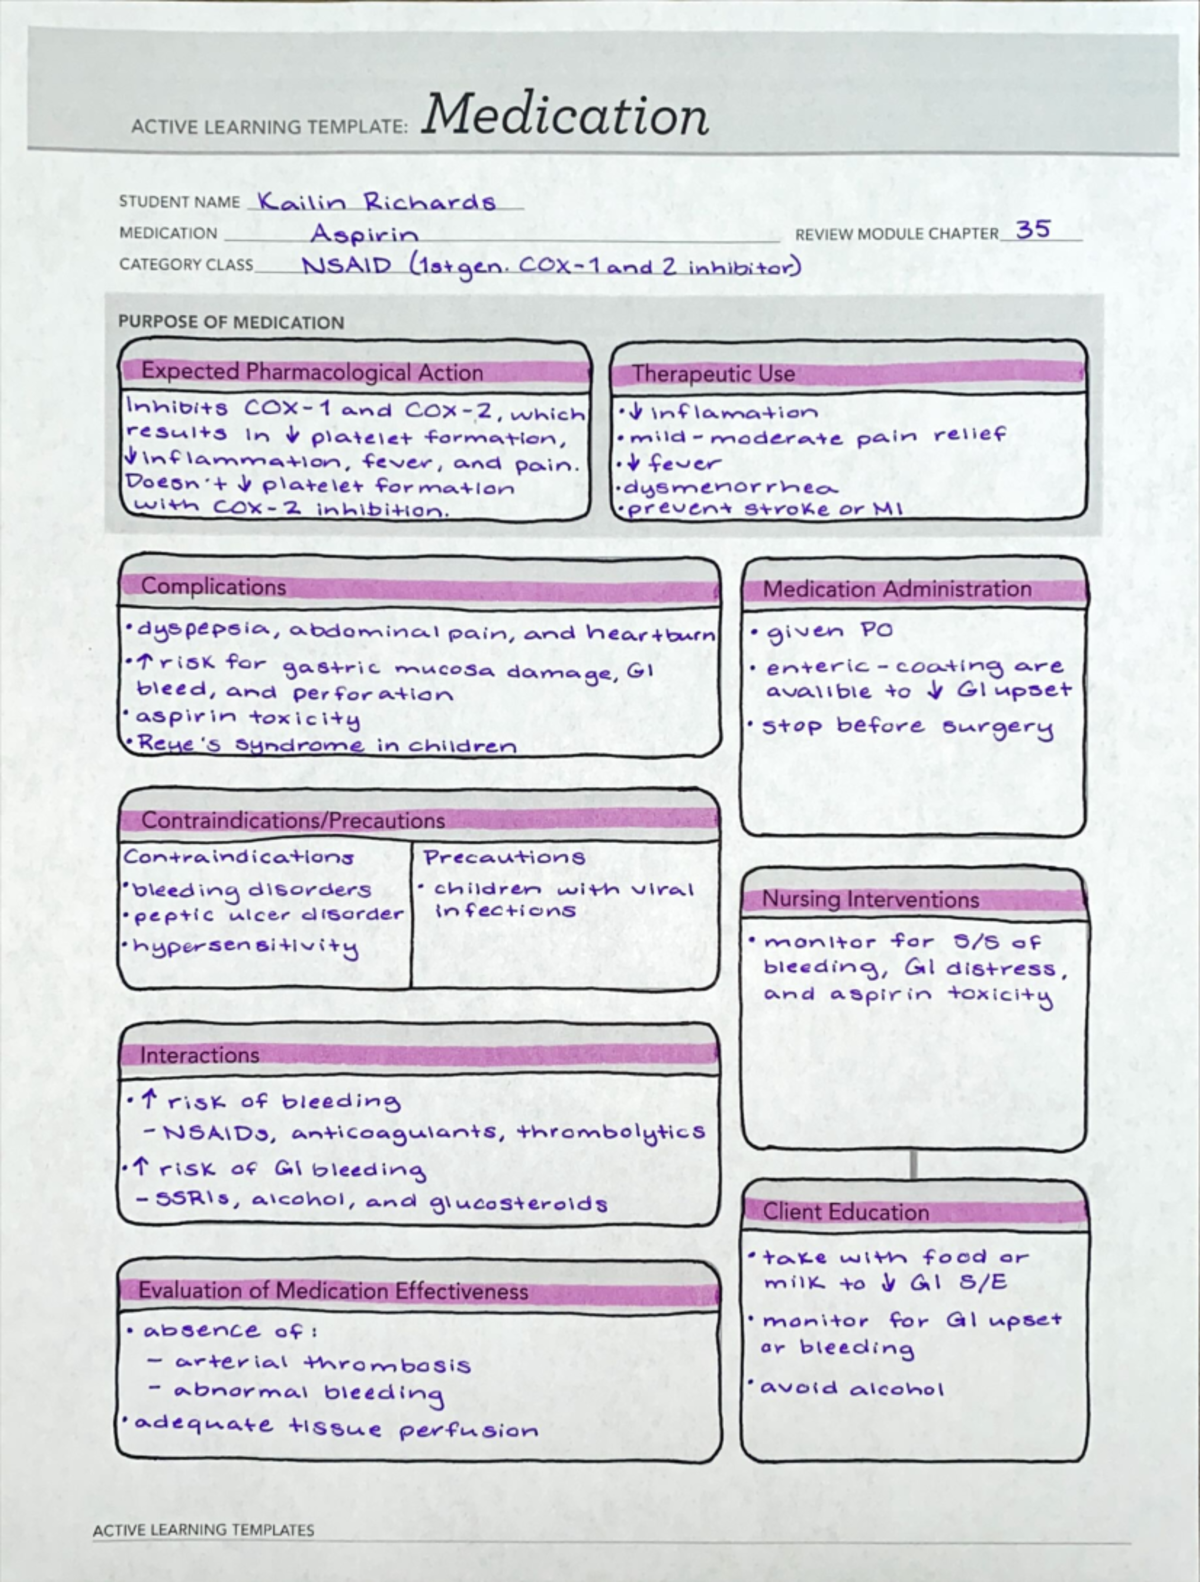 ACTIVE LEARNING TEMPLATE: Medication
STUDENT NAME Kailin Richards
MEDICATION Aspirin
REVIEW MODULE CHAPTER 35
CATEGORY CLASS NSAID (1st gen. COX-1 and 2 inhibitor)
PURPOSE OF MEDICATION
Expected Pharmacological Action
Inhibits COX-1 and COX-2, which
results in ↓ platelet formation,
↓ inflammation, fever, and pain.
Doesn't ↓ platelet formation
with COX-2 inhibition.
Therapeutic Use
• ↓ inflamation
• mild-moderate pain relief
• ↓ fever
• dysmenorrhea
• prevent stroke or MI
Complications
• dyspepsia, abdominal pain, and heartburn
• ↑ risk for gastric mucosa damage, GI
bleed, and perforation
• aspirin toxicity
• Reye's syndrome in children
Medication Administration
• given PO
• enteric-coating are
avalible to ↓ GI upset
• stop before surgery
Contraindications/Precautions
Contraindications
• bleeding disorders
• peptic ulcer disorder
• hypersensitivity
Precautions
• children with viral
infections
Nursing Interventions
• monitor for S/S of
bleeding, GI distress,
and aspirin toxicity
Interactions
• ↑ risk of bleeding
- NSAIDs, anticoagulants, thrombolytics
• ↑ risk of GI bleeding
- SSRIs, alcohol, and glucosteroids
Client Education
• take with food or
milk to ↓ GI S/E
• monitor for GI upset
or bleeding
• avoid alcohol
Evaluation of Medication Effectiveness
• absence of:
- arterial thrombosis
- abnormal bleeding
• adequate tissue perfusion
ACTIVE LEARNING TEMPLATES